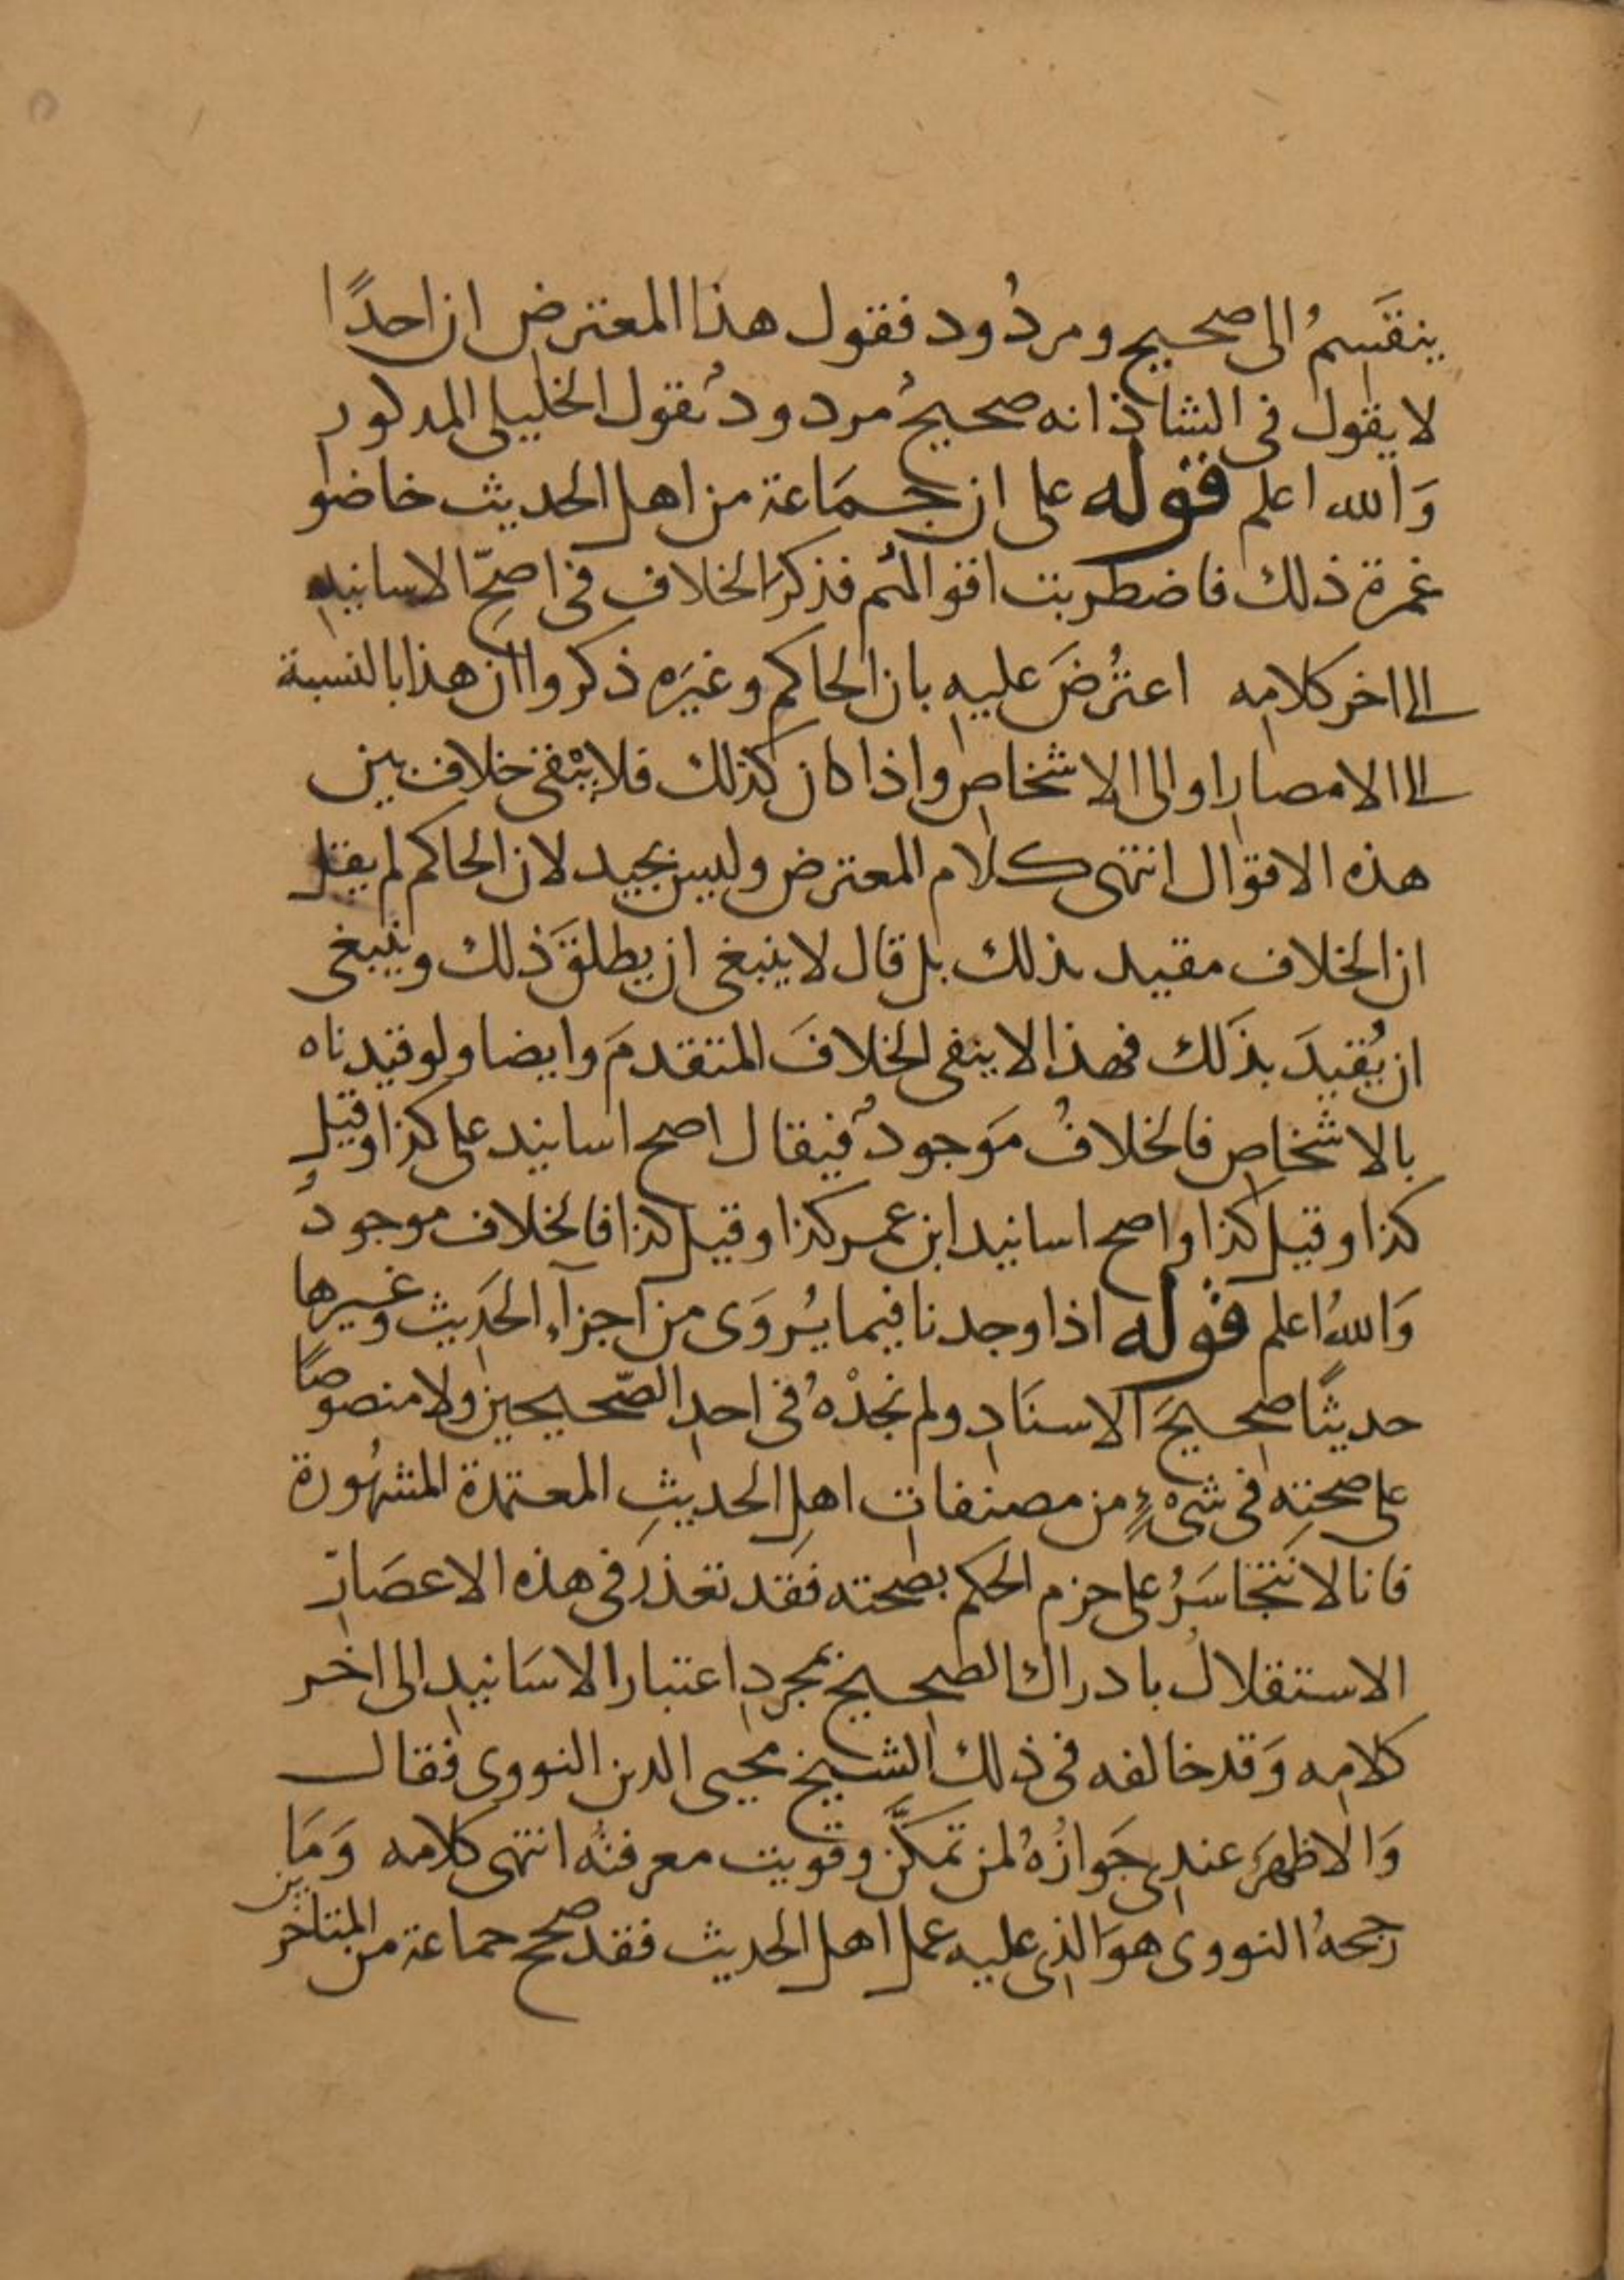 ينقَسمُ الى صحيح ومردُود فقول هذا المعترض ان احدًا
لا يقول فى الشاذ انه صحيحُ مردودُ بقول الخليلى المذكور
وَالله اعلم قوله على ان جمَاعة من اهل الحديث خاضوا
غمرة ذلك فاضطربت اقوالهُم فذكر الخلاف فى اصحِّ الاسانيد
الى اخر كلامه اعتُرضَ عليه بان الحاكم وغيَره ذكروا ان هذا بالنسبة
الى الامصار او الى الاشخاص واذا كان كذلك فلا يبْقى خلاف بين
هذه الاقوال انتهى كلام المعترض وليس بجيد لان الحاكم لم يقل
ان الخلاف مقيد بذلك بل قال لا ينبغى ان يطلقَ ذلك وينبغى
ان يُقيدَ بذَلك فهذا لا ينفى الخلافَ المتقدمَ وايضا ولو قيدناه
بالاشخاص فالخلافُ مَوجودُ فيقال اصح اسانيد على كذا وقيل
كذا وقيل كذا واصح اسانيد ابن عمر كذا وقيل كذا فالخلاف موجودُ
وَاللهُ اعلم قوله اذا وجدنا فيما يُروَى من اجزآءِ الحَديث وغيرها
حديثًا صحيحَ الاسنَادِ ولم نجدْهُ فى احدِ الصّحيحين ولا منصوصًا
على صحتِه فى شىْءٍ من مصنفات اهلِ الحديثِ المعتمدة المشهُورة
فانا لا نتجَاسَرُ على جزم الحكم بصحته فقَد تعذر فى هذه الاعصَار
الاستقلالُ بادراك الصحيح بمجردِ اعتبار الاسَانيد الى اخر
كلامِه وَقد خالفه فى ذلك الشيخ محيى الدين النووى فقال
وَالاظهَر عندى جَوازُهُ لمن تمكَّن وقويت معرفتُه انتهى كلامه وَمَا
رجحهُ النووى هوَ الذى عليه عمل اهل الحديث فقد صحح جماعة من المتاخرين